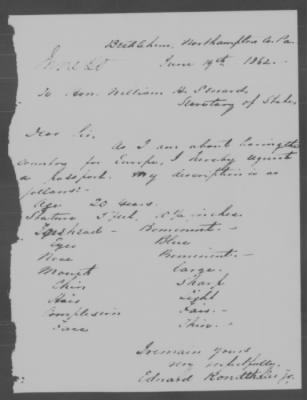 Bethlehem, Northampton Co. Pa.
June 19th 1862.
June 20
To Hon. William H. Seward,
Secretary of State,
Dear Sir,
As I am about leaving the
country for Europe, I hereby request
a passport. My description is as
follows:-
Age 20 years.
Stature 5 feet, inches.
Forehead - Prominent. -
Eyes Blue
Nose Prominent. -
Mouth Large. -
Chin Sharp
Hair Light
Complexion Fair. -
Face Thin. -
I remain yours
very respectfully,
Edward Jr.